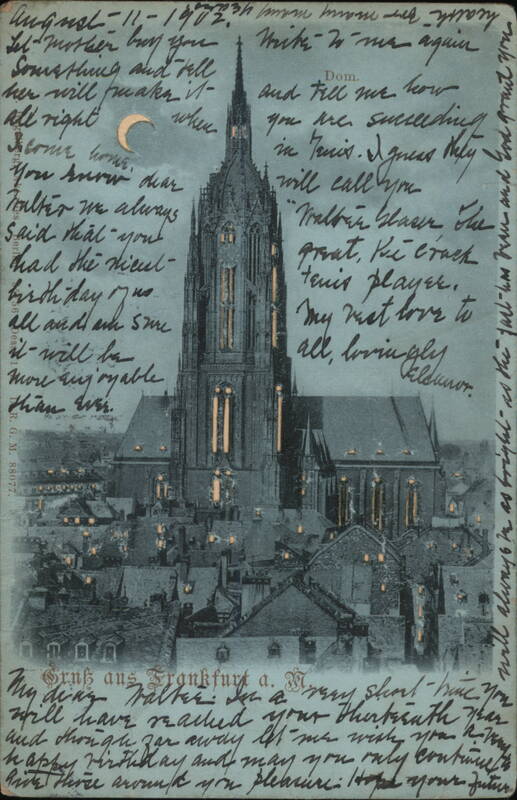 August - 11 - 1902.
Dom.
My dear Walter: In a very short time you
will have reached your thirteenth year
and though far away let me wish you a very
happy birthday and may you only continue to
give those around you pleasure: Hope your future
will always be as bright - as the past - has been and God grant you
many many more years
Let mother buy you
Something and tell
her will make it
all right when
I come home
You know dear
Walter we always
said that you
had the nicest
birthday of us
all and am sure
it will be
more enjoyable
than ever.
Write to me again
and tell me how
you are succeeding
in Tenis. I guess they
will call you
"Walter the
great, the crack
Tenis player.
My best love to
all, lovingly
Eleanor.
Gruß aus Frankfurt a. M.
D. R. G. M. 88077.